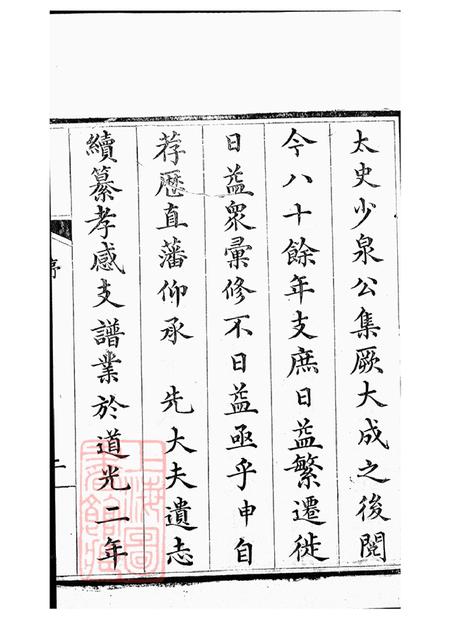 太史少泉公集厥大成之後閱
今八十餘年支庶日益繁遷徙
日益衆彙修不日益亟乎申自
荐歴直藩仰承　先大夫遺志
續纂孝感支譜業於道光二年
序
二
上海圖書館藏